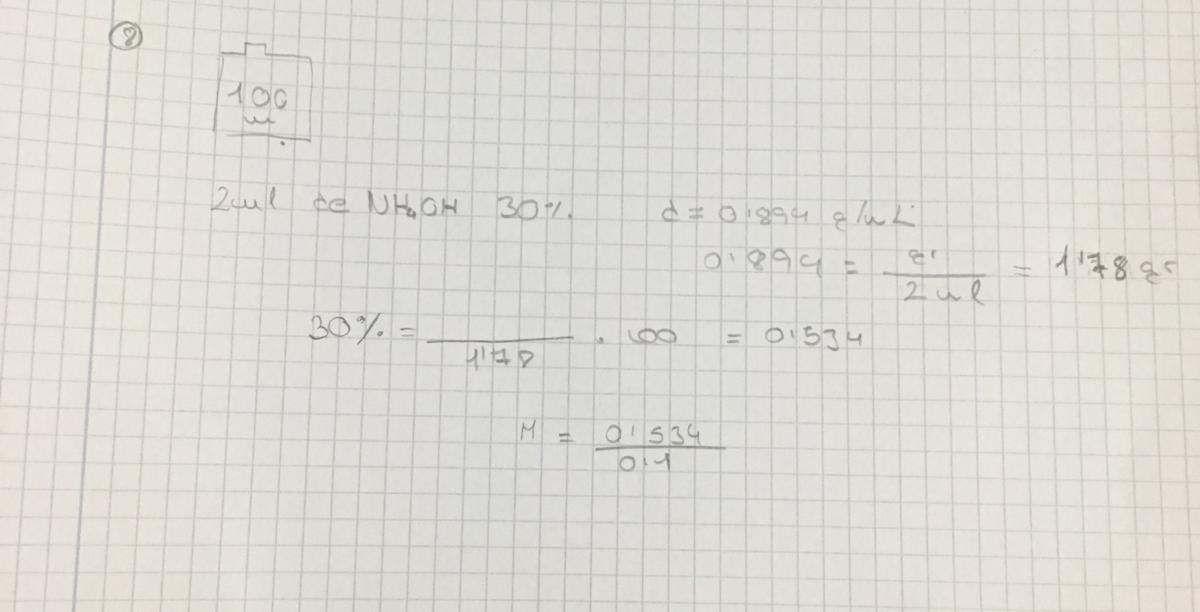 8
100
ml
2ml de NH4OH 30% d = 0'894 g/mL
0'894 = gr / 2 ml = 1'78 gr
30% = / 1'78 · 100 = 0'534
M = 0'534 / 0'1